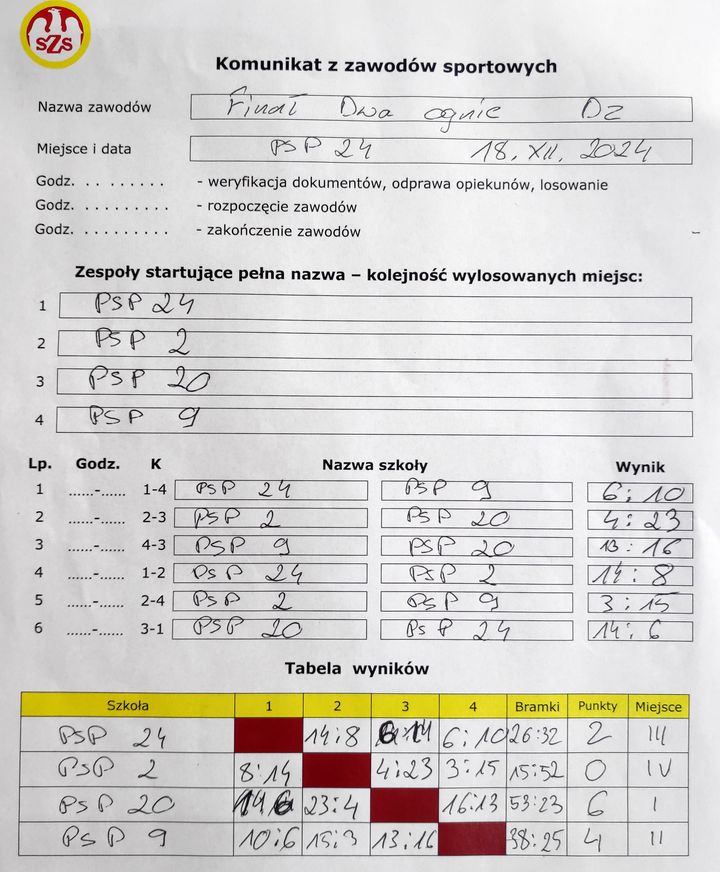 SZS
Komunikat z zawodów sportowych
Nazwa zawodów Finał Dwa ognie DZ
Miejsce i data PSP 24 18. XII. 2024
Godz. . . . . . . . . . - weryfikacja dokumentów, odprawa opiekunów, losowanie
Godz. . . . . . . . . . - rozpoczęcie zawodów
Godz. . . . . . . . . . - zakończenie zawodów
Zespoły startujące pełna nazwa – kolejność wylosowanych miejsc:
1 PSP 24
2 PSP 2
3 PSP 20
4 PSP 9
Lp. Godz. K Nazwa szkoły Wynik
1 ......-...... 1-4 PSP 24 PSP 9 6:10
2 ......-...... 2-3 PSP 2 PSP 20 4:23
3 ......-...... 4-3 PSP 9 PSP 20 13:16
4 ......-...... 1-2 PSP 24 PSP 2 14:8
5 ......-...... 2-4 PSP 2 PSP 9 3:15
6 ......-...... 3-1 PSP 20 PSP 24 14:6
Tabela wyników
Szkoła 1 2 3 4 Bramki Punkty Miejsce
PSP 24 14:8 6:14 6:10 26:32 2 III
PSP 2 8:14 4:23 3:15 15:52 0 IV
PSP 20 14 6 23:4 16:13 53:23 6 I
PSP 9 10:6 15:3 13:16 38:25 4 II